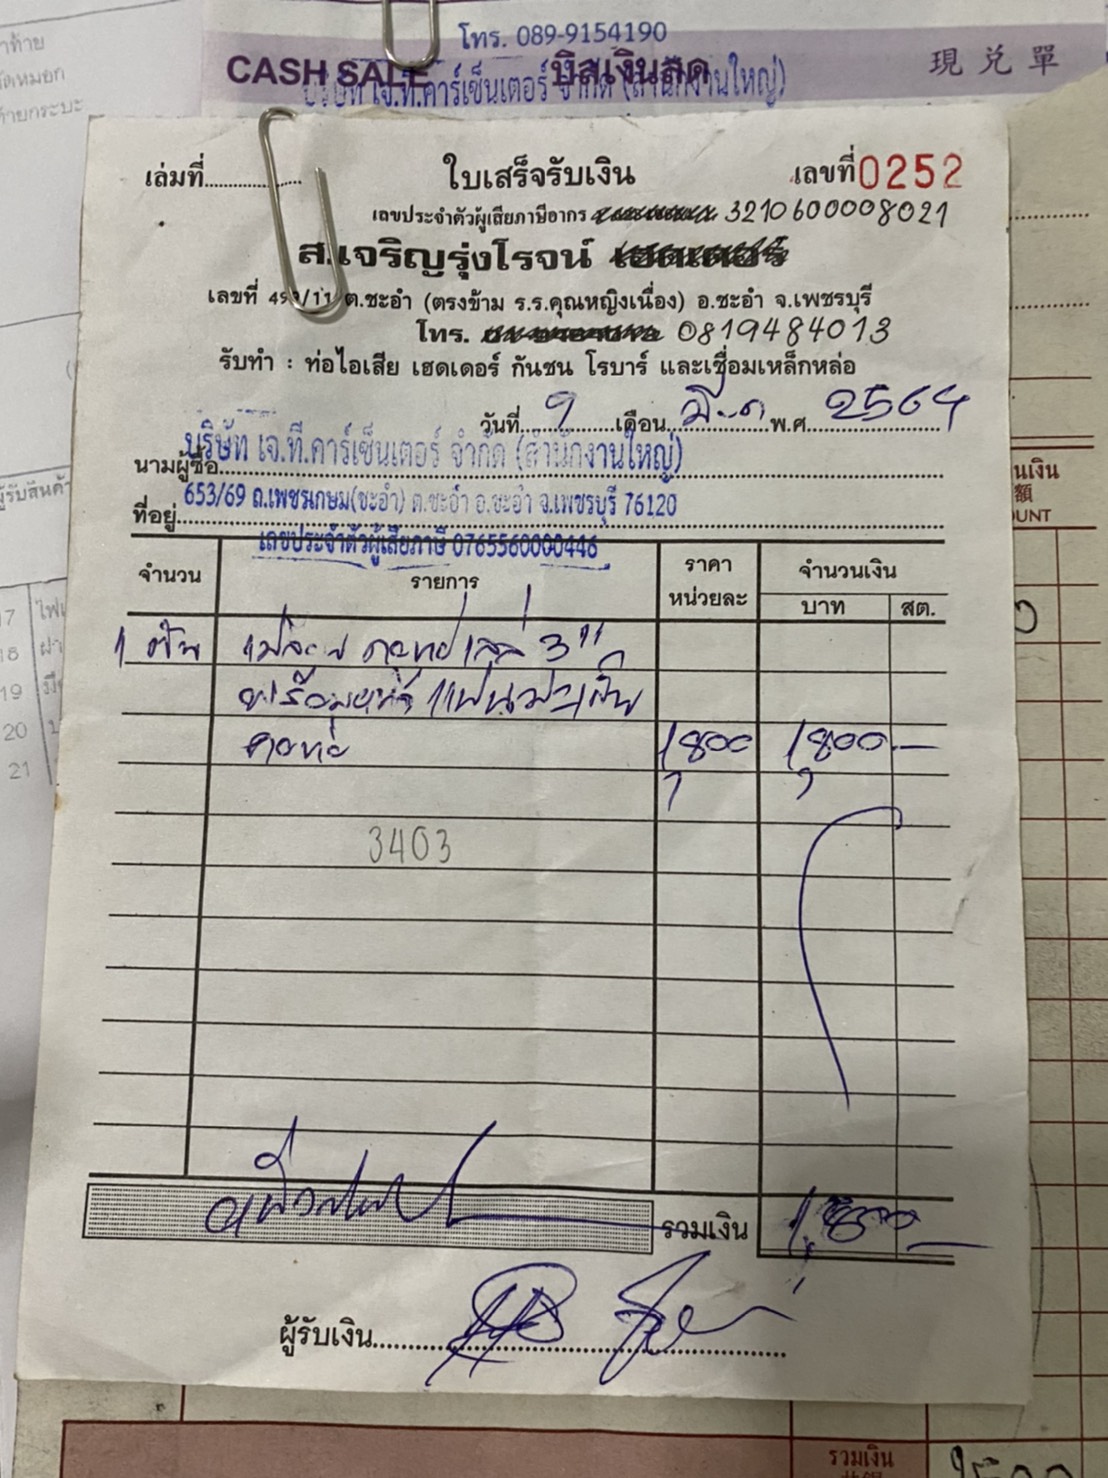 โทร. 089-9154190
CASH SALE บิลเงินสด 現兑單
บริษัท เจ.ที.คาร์เซ็นเตอร์ จำกัด (สำนักงานใหญ่)
เล่มที่ ใบเสร็จรับเงิน เลขที่ 0252
เลขประจำตัวผู้เสียภาษีอากร 3210600008021
ส.เจริญรุ่งโรจน์
เลขที่ 499/11 ต.ชะอำ (ตรงข้าม ร.ร.คุณหญิงเนื่อง) อ.ชะอำ จ.เพชรบุรี
โทร. 0819484013
รับทำ : ท่อไอเสีย เฮดเดอร์ กันชน โรบาร์ และเชื่อมเหล็กหล่อ
วันที่ 9 เดือน มี.ค พ.ศ. 2564
นามผู้ซื้อ บริษัท เจ.ที.คาร์เซ็นเตอร์ จำกัด (สำนักงานใหญ่)
ที่อยู่ 653/69 ถ.เพชรเกษม(ชะอำ) ต.ชะอำ อ.ชะอำ จ.เพชรบุรี 76120
เลขประจำตัวผู้เสียภาษี 0765560000446
จำนวน รายการ ราคาหน่วยละ จำนวนเงิน
บาท สต.
1 คัน 3"
คอท่อ 1,800 1,800 -
3403
รวมเงิน 1,800 -
ผู้รับเงิน
ผู้รับสินค้า
17
18
19
20
21
นเงิน
額
OUNT
รวมเงิน